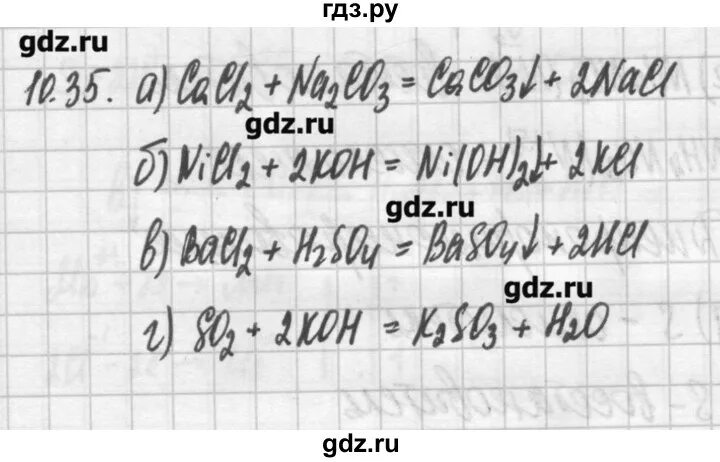 гдз.ру
gdz.ru
10.35. а) CaCl₂ + Na₂CO₃ = CaCO₃↓ + 2NaCl
gdz.ru
б) NiCl₂ + 2KOH = Ni(OH)₂↓ + 2KCl
gdz.ru
в) BaCl₂ + H₂SO₄ = BaSO₄↓ + 2HCl
gdz.ru
г) SO₂ + 2KOH = K₂SO₃ + H₂O
gdz.ru